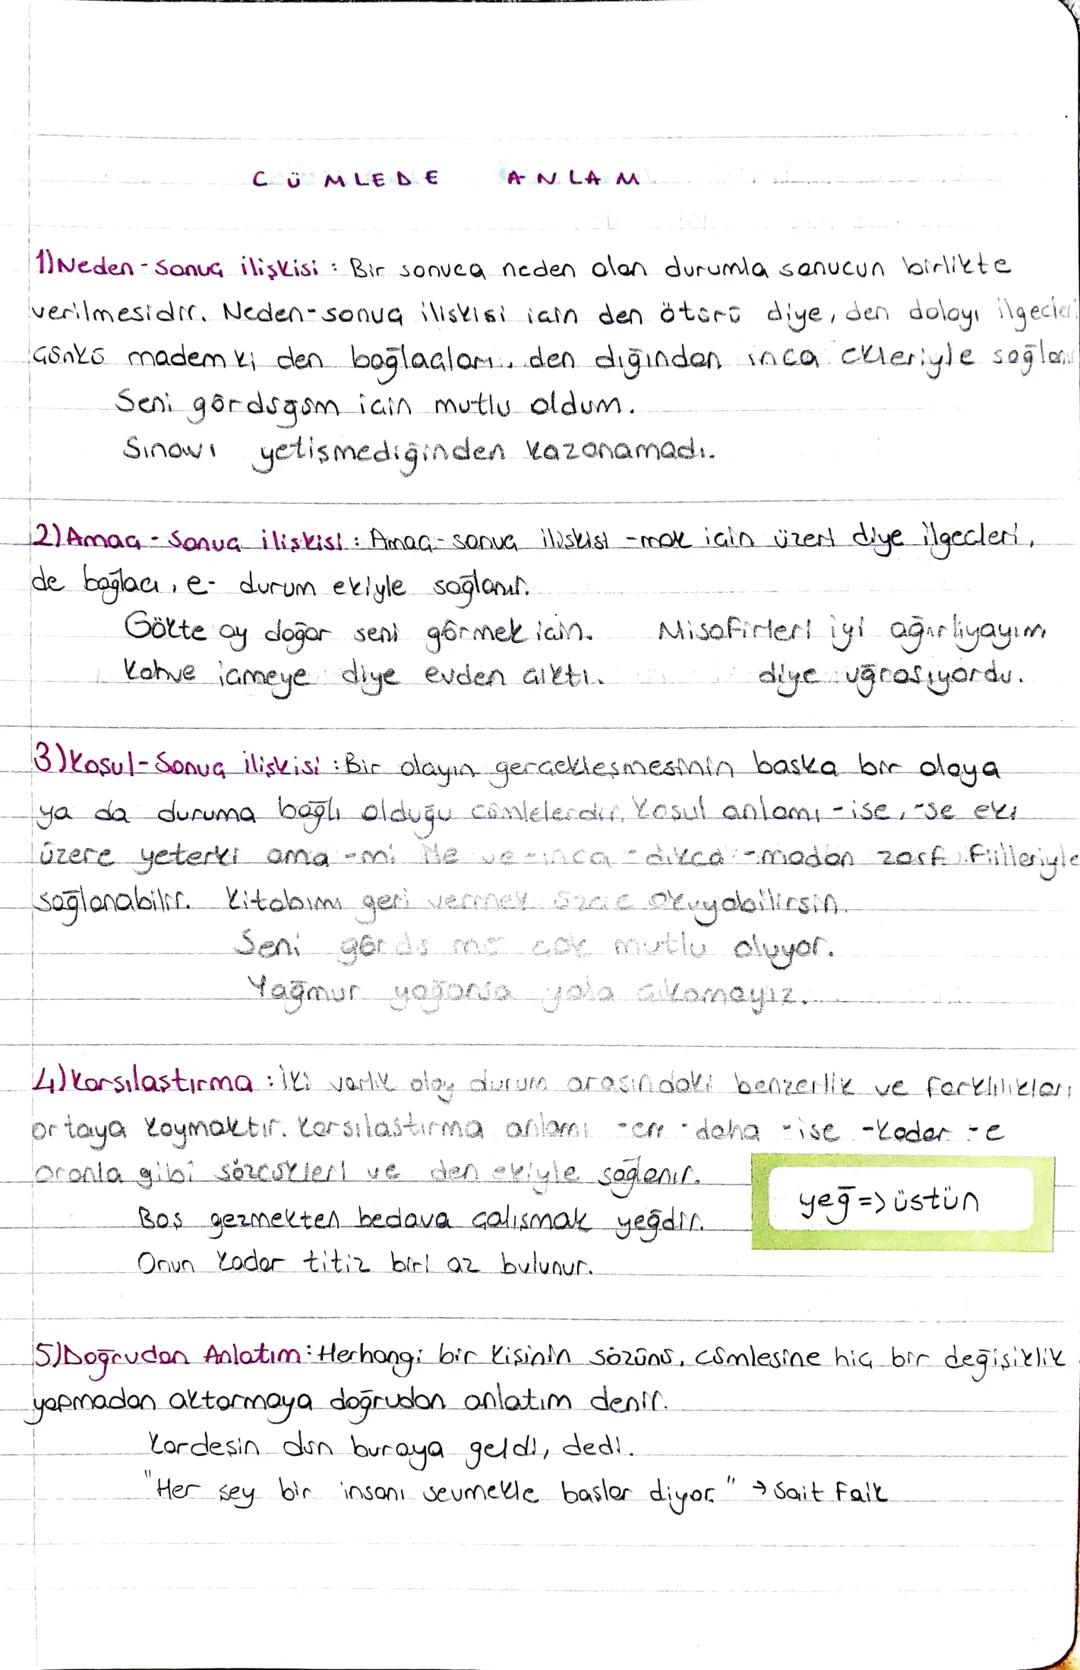 CÜMLEDE ANLAM
1) Neden-Sonuç ilişkisi : Bir sonuca neden olan durumla sonucun birlikte
verilmesidir. Neden-sonuç ilişkisi için den ötürü diye, den dolayı ilgeçleri
çünkü mademki den bağlaçları, den dığından ınca ekleriyle sağlanır
Seni gördüğüm için mutlu oldum.
Sınavı yetişmediğinden kazanamadı.
2) Amaç - Sonuç ilişkisi : Amaç-sonuç ilişkisi -mak için üzeri diye ilgeçleri,
de bağlacı, e- durum ekiyle sağlanır.
Gökte ay doğar seni görmek için.
Kahve içmeye diye evden çıktı.
Misafirleri iyi ağırlıyayım
diye uğraşıyordu.
3) Koşul-Sonuç ilişkisi : Bir olayın gerçekleşmesinin başka bir olaya
ya da duruma bağlı olduğu cümlelerdir. Koşul anlamı -ise, -se eki
üzere yeterki ama -mi ile ve -ınca -dıkça -madan zarf fiilleriyle
sağlanabilir. Kitabımı geri vermek üzere okuyabilirsin.
Seni gördü mü çok mutlu oluyor.
Yağmur yağarsa yola çıkamayız.
4) Karşılaştırma : İki varlık olay durum arasındaki benzerlik ve farklılıkları
ortaya koymaktır. Karşılaştırma anlamı -en -daha -ise -kadar -e
oranla gibi sözcükleri ve den ekiyle sağlanır.
Boş gezmekten bedava çalışmak yeğdir.
Onun kadar titiz biri az bulunur.
yeğ => üstün
5) Doğrudan Anlatım : Herhangi bir kişinin sözünü, cümlesine hiç bir değişiklik
yapmadan aktarmaya doğrudan anlatım denir.
Kardeşin dün buraya geldi, dedi.
"Her şey bir insanı sevmekle başlar diyor." → Sait Faik